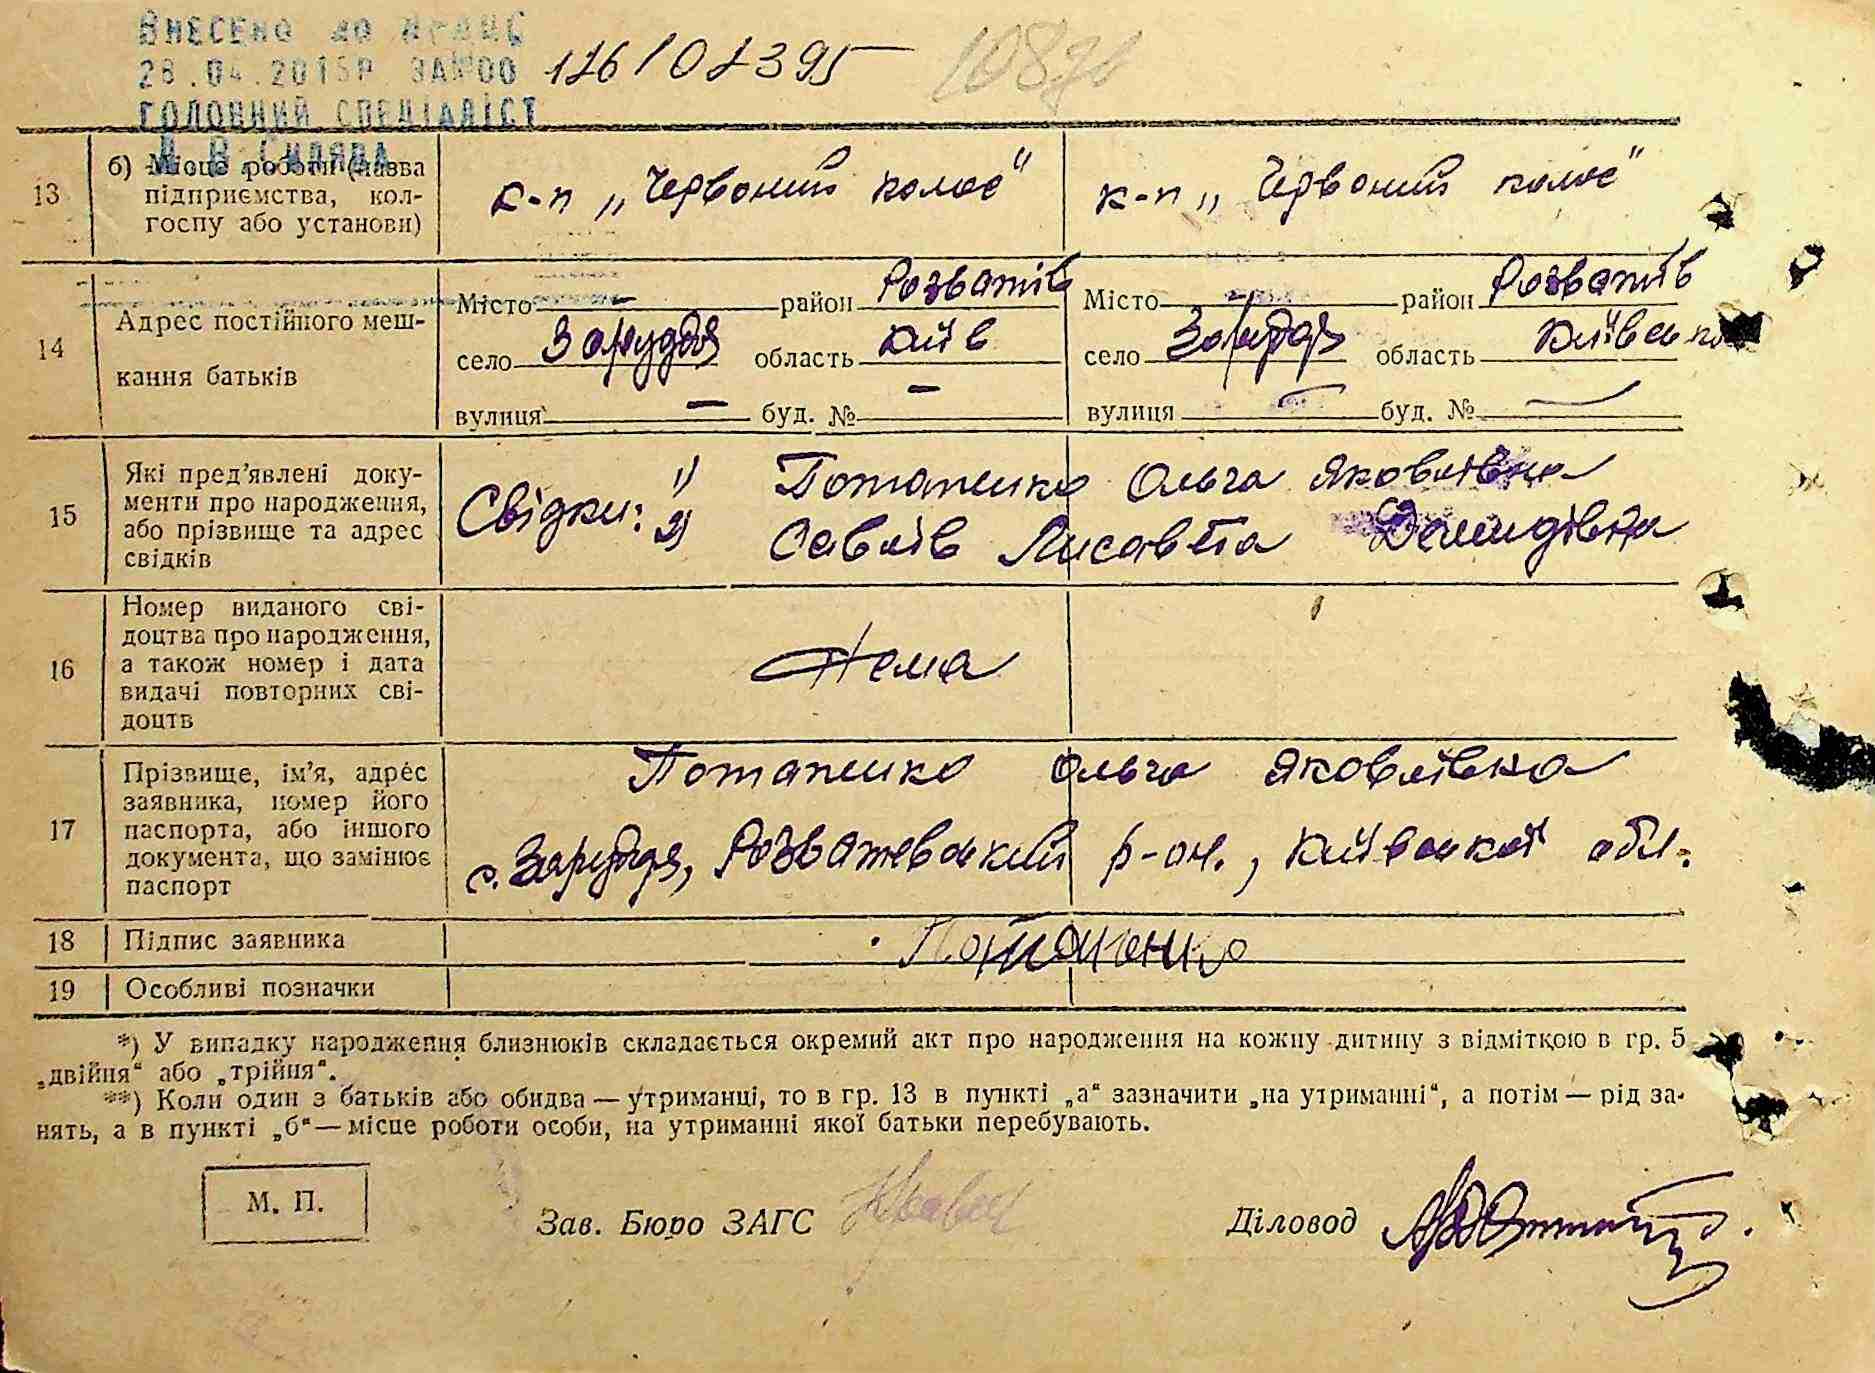 ВНЕСЕНО ДО ДРАЦС
28.04.2015Р ЗА №00 126101395
ГОЛОВНИЙ СПЕЦІАЛІСТ
13 б) Місце роботи (назва підприємства, кол-
госпу або установи)
к-п „Червоний колос" к-п „Червоний колос"
14 Адрес постійного меш-
кання батьків
Місто — район Розважів Місто — район Розважів
село Заруддя область Київ село Заруддя область Київсько
вулиця — буд. № — вулиця — буд. № —
15 Які пред'явлені доку-
менти про народження,
або прізвище та адрес
свідків
Свідки: 1) Потапенко Ольга Яковлівна
2) Савлів Лисавета Демидівна
16 Номер виданого сві-
доцтва про народження,
а також номер і дата
видачі повторних сві-
доцтв
Нема
17 Прізвище, ім'я, адрес
заявника, номер його
паспорта, або іншого
документа, що замінює
паспорт
Потапенко Ольга Яковлівна
с. Заруддя, Розважевський р-он., Київської обл.
18 Підпис заявника Потапенко
19 Особливі позначки
*) У випадку народження близнюків складається окремий акт про народження на кожну дитину з відміткою в гр. 5
„двійня“ або „трійня“.
**) Коли один з батьків або обидва — утриманці, то в гр. 13 в пункті „а“ зазначити „на утриманні“, а потім — рід за-
нять, а в пункті „б“ — місце роботи особи, на утриманні якої батьки перебувають.
М. П.
Зав. Бюро ЗАГС Діловод